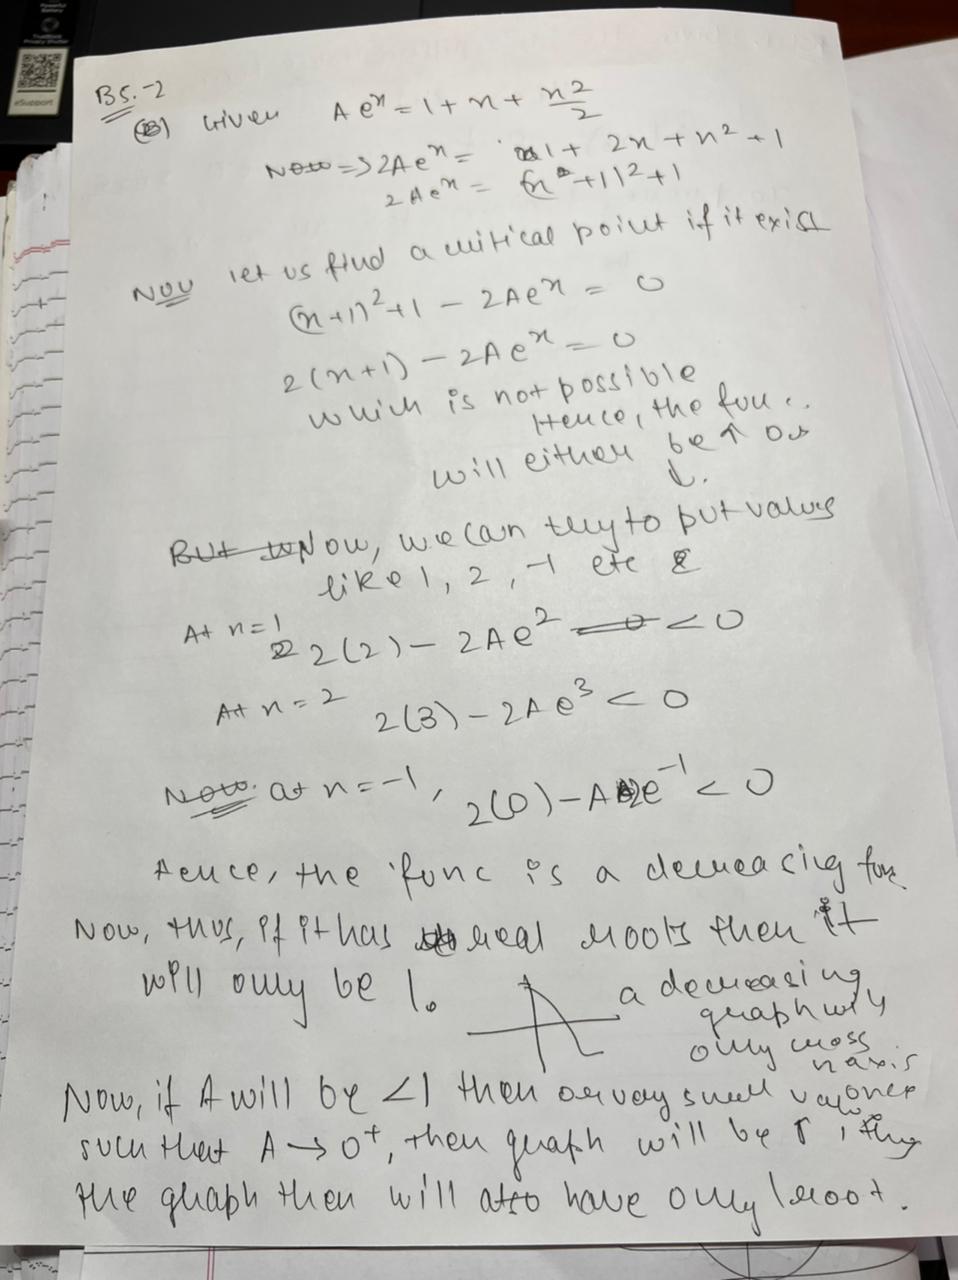 Powerful Battery
TrueBlock Privacy Shutter
eSupport
BS.-2
(B) Given A eⁿ = 1 + n + n²/2
Now => 2Aeⁿ = 1 + 2n + n² + 1
2Aeⁿ = (n + 1)² + 1
Now let us find a critical point if it exist
(n+1)² + 1 - 2Aeⁿ = 0
2(n+1) - 2Aeⁿ = 0
which is not possible
Hence, the fun..
will either be ↑ or
↓.
But Now, we can try to put values
like 1, 2, -1 etc
At n=1
2(2) - 2Ae² = 0 < 0
At n = 2 2(3) - 2Ae³ < 0
Now. at n = -1, 2(0) - A2e⁻¹ < 0
Hence, the func is a decreasing func
Now, thus, if it has real roots then it
will only be 1. a decreasing
graph will
only cross
n axis
once
Now, if A will be <1 then or very small value
such that A → 0⁺, then graph will be ↑, thus
the graph then will also have only 1 root.